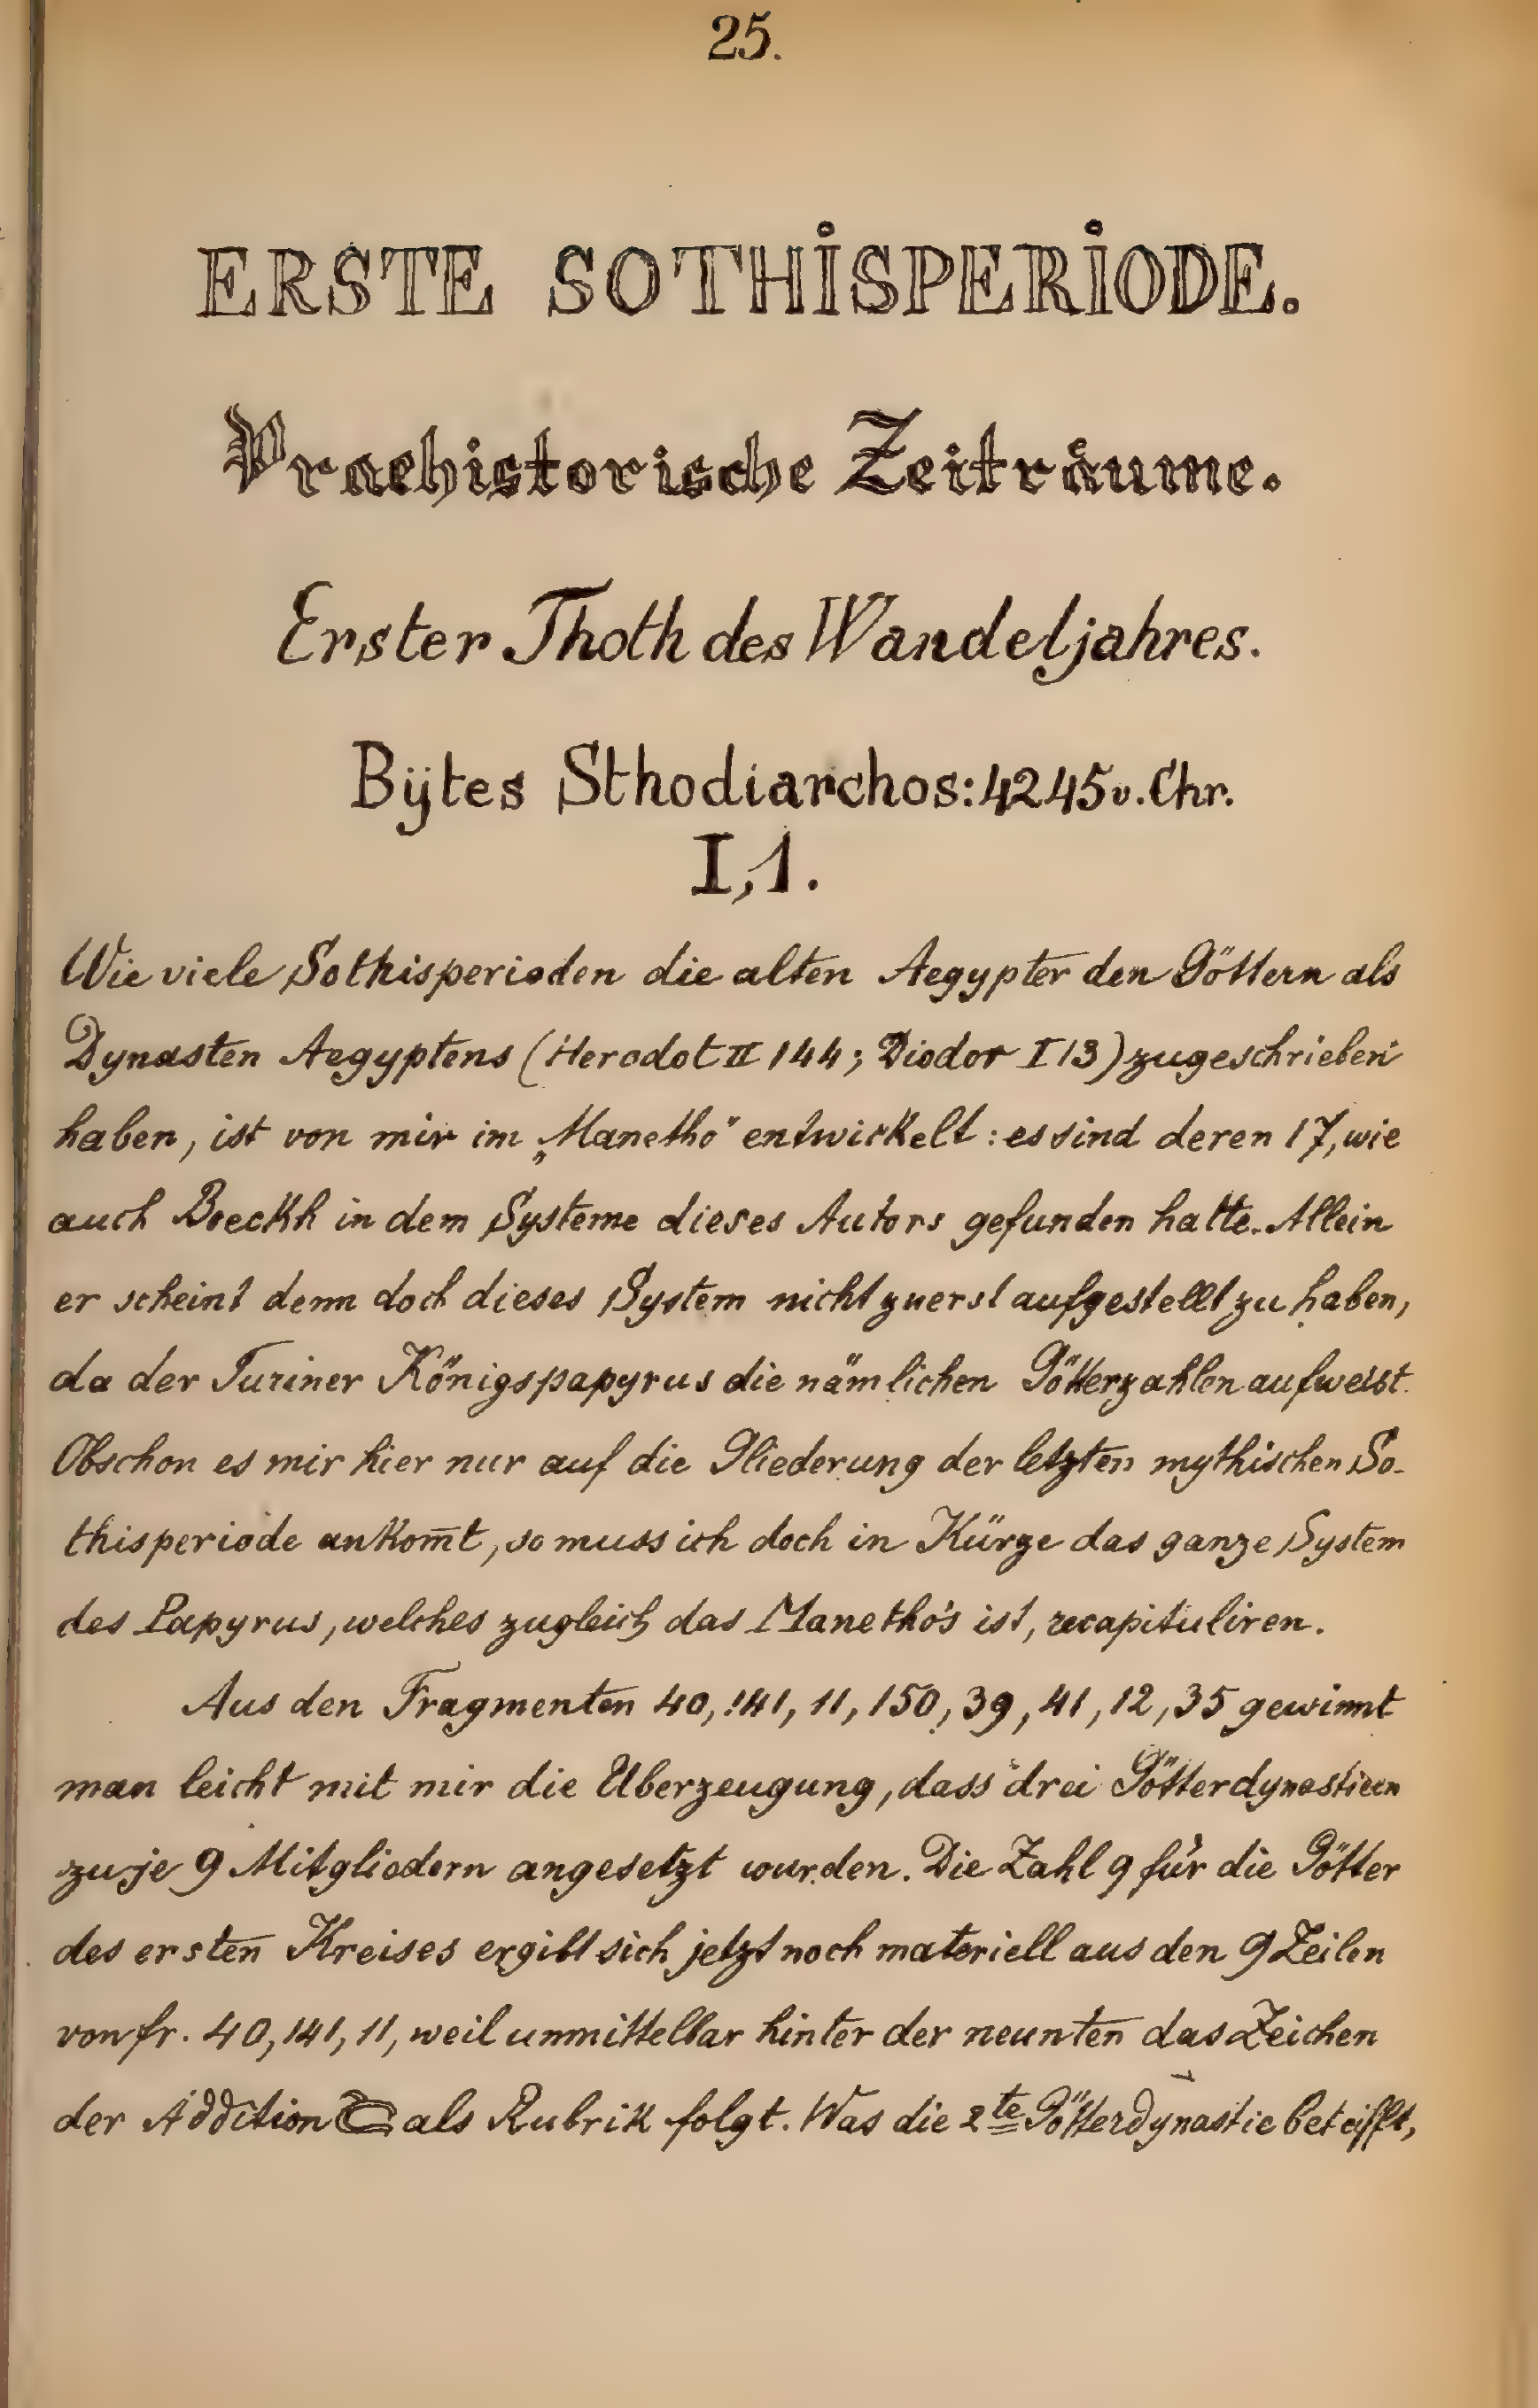 25.
ERSTE SOTHISPERIODE.
Praehistorische Zeiträume.
Erster Thoth des Wandeljahres.
Bÿtes Sthodiarchos: 4245 v. Chr.
I, 1.
Wie viele Sothisperioden die alten Aegypter den Göttern als
Dynasten Aegyptens (Herodot II 144; Diodor I 13) zugeschrieben
haben, ist von mir im „Manetho“ entwickelt: es sind deren 17, wie
auch Boeckh in dem Systeme dieses Autors gefunden hatte. Allein
er scheint denn doch dieses System nicht zuerst aufgestellt zu haben,
da der Turiner Königspapyrus die nämlichen Götterzahlen aufweist.
Obschon es mir hier nur auf die Gliederung der letzten mythischen So-
thisperiode ankom̄t, so muss ich doch in Kürze das ganze System
des Papyrus, welches zugleich das Manetho's ist, recapituliren.
Aus den Fragmenten 40, 141, 11, 150, 39, 41, 12, 35 gewinnt
man leicht mit mir die Überzeugung, dass drei Götterdynastieen
zu je 9 Mitgliedern angesetzt wurden. Die Zahl 9 für die Götter
des ersten Kreises ergibt sich jetzt noch materiell aus den 9 Zeilen
von fr. 40, 141, 11, weil unmittelbar hinter der neunten das Zeichen
der Addition als Rubrik folgt. Was die 2te Götterdynastie betrifft,